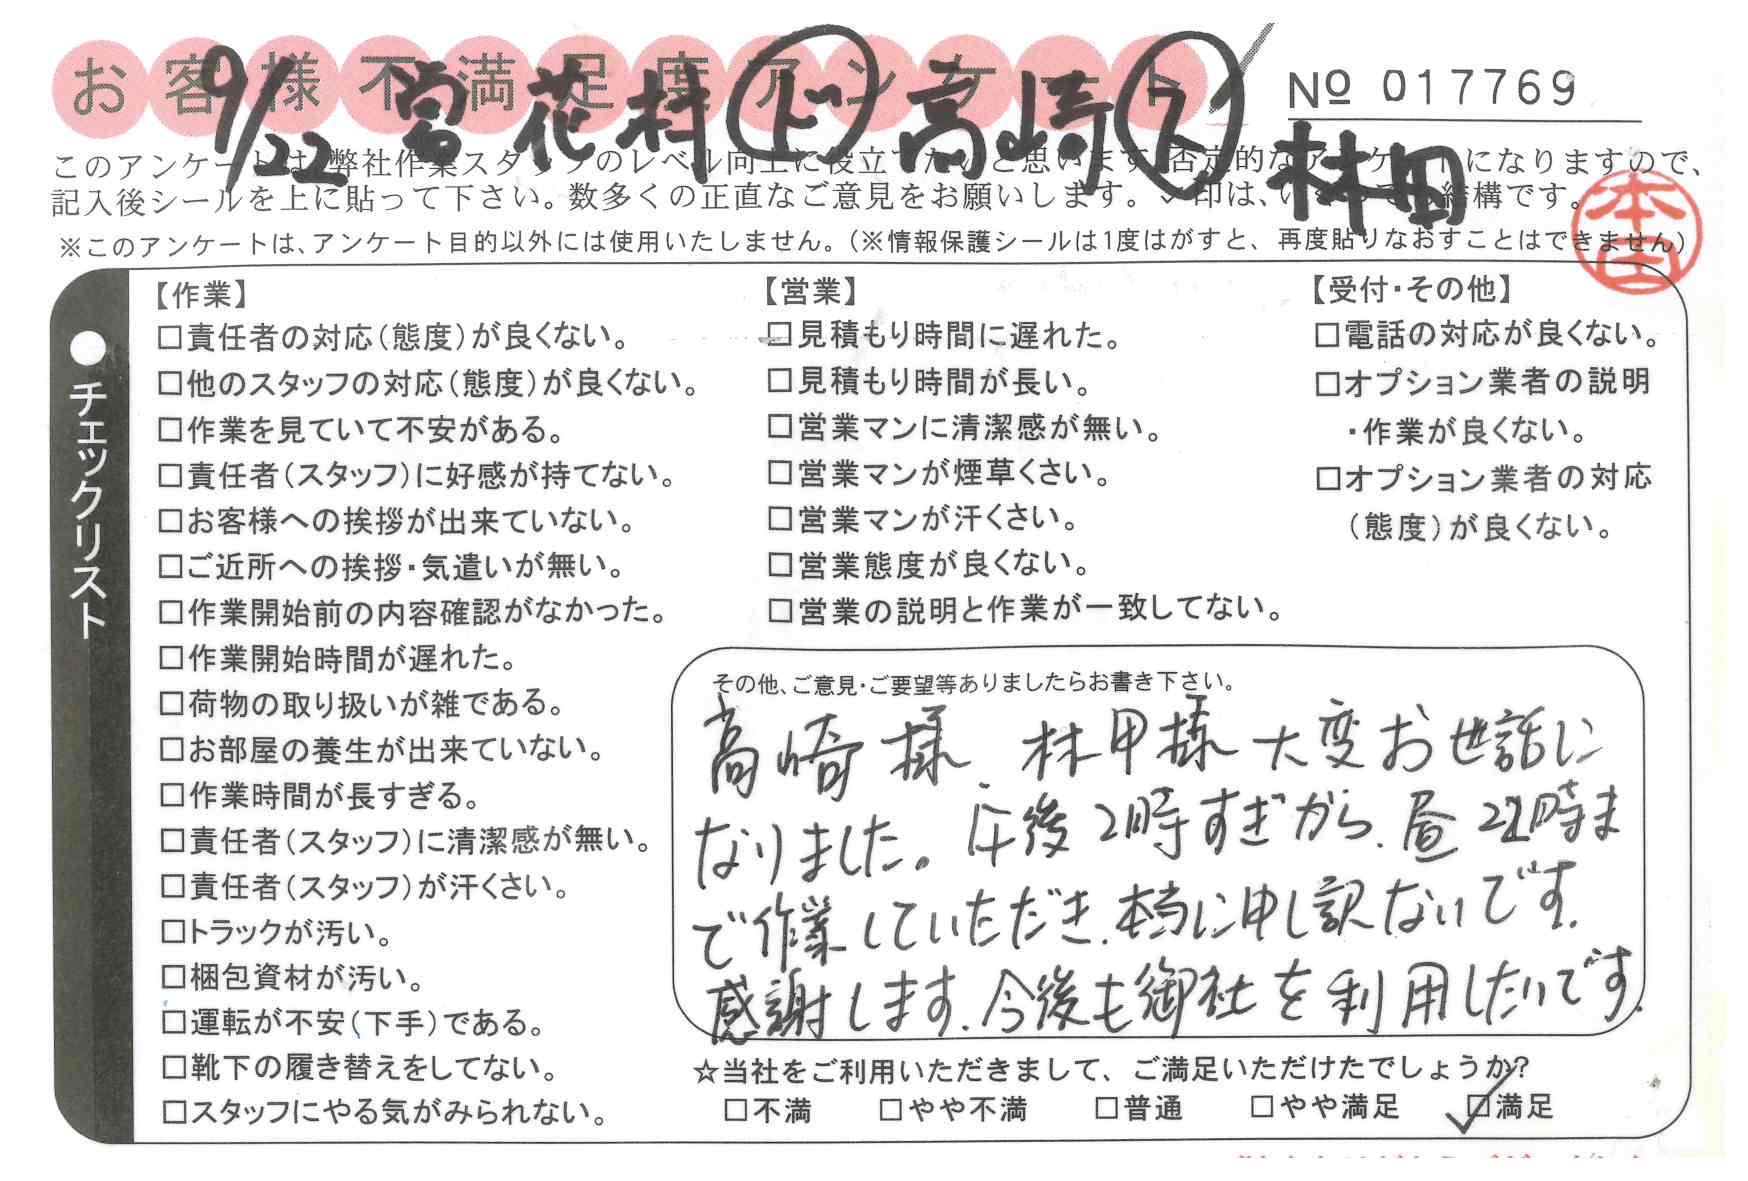 お客様不満足度アンケート
9/22 宮花村 ト 高崎 ス 林田
№ 017769
このアンケートは、弊社作業スタッフのレベル向上に役立てたいと思います。否定的なアンケートになりますので、
記入後シールを上に貼って下さい。数多くの正直なご意見をお願いします。✓印は、いくつでも結構です。
※このアンケートは、アンケート目的以外には使用いたしません。（※情報保護シールは1度はがすと、再度貼りなおすことはできません）
本田
●チェックリスト
【作業】
□責任者の対応（態度）が良くない。
□他のスタッフの対応（態度）が良くない。
□作業を見ていて不安がある。
□責任者（スタッフ）に好感が持てない。
□お客様への挨拶が出来ていない。
□ご近所への挨拶・気遣いが無い。
□作業開始前の内容確認がなかった。
□作業開始時間が遅れた。
□荷物の取り扱いが雑である。
□お部屋の養生が出来ていない。
□作業時間が長すぎる。
□責任者（スタッフ）に清潔感が無い。
□責任者（スタッフ）が汗くさい。
□トラックが汚い。
□梱包資材が汚い。
□運転が不安（下手）である。
□靴下の履き替えをしてない。
□スタッフにやる気がみられない。
【営業】
□見積もり時間に遅れた。
□見積もり時間が長い。
□営業マンに清潔感が無い。
□営業マンが煙草くさい。
□営業マンが汗くさい。
□営業態度が良くない。
□営業の説明と作業が一致してない。
【受付・その他】
□電話の対応が良くない。
□オプション業者の説明
・作業が良くない。
□オプション業者の対応
（態度）が良くない。
その他、ご意見・ご要望等ありましたらお書き下さい。
高崎様、林田様大変お世話に
なりました。午後2時すぎから、昼 時ま
で作業していただき、本当に申し訳ないです。
感謝します。今後も御社を利用したいです。
☆当社をご利用いただきまして、ご満足いただけたでしょうか？
□不満 □やや不満 □普通 □やや満足 ☑満足